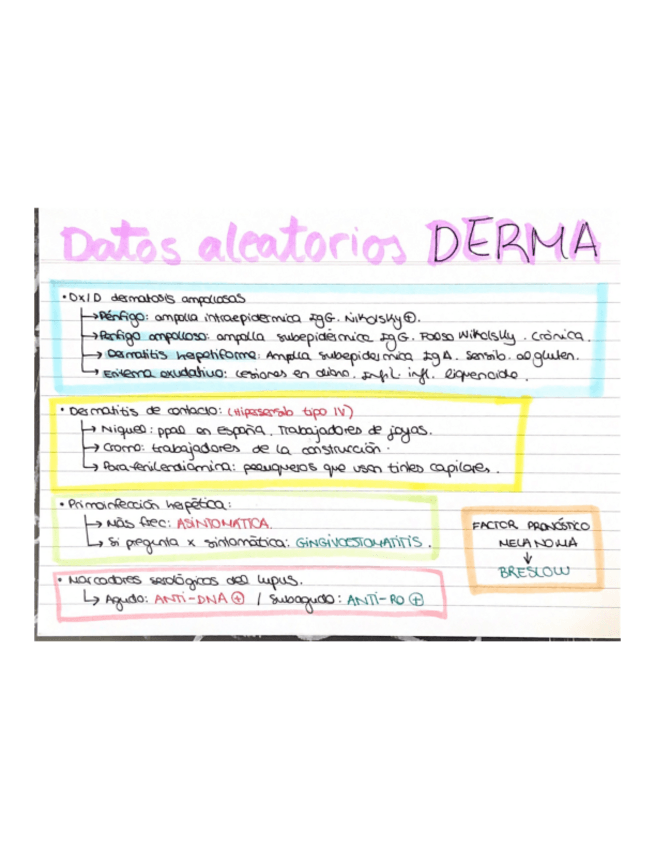 Datos aleatorios DERMA
• DX/D dermatosis ampollosas
↳ Pénfigo: ampolla intraepidermica IgG. Nikolsky ⊕.
↳ Penfigo ampolloso: ampolla subepidérmica IgG. Falso Nikolsky. Crónica.
↳ Dermatitis herpetiforme: Ampolla subepidermica IgA. Sensib. al gluten.
↳ Eritema exudativo: lesiones en diana. Infil. infl. liquenoide.
• Dermatitis de contacto: (Hipersensib tipo IV)
↳ Niquel: ppal en España. Trabajadores de joyas.
↳ Cromo: trabajadores de la construcción.
↳ Parafenilendiamina: peluqueros que usan tintes capilares.
• Primoinfección herpética:
↳ Más frec: ASINTOMATICA.
↳ Si pregunta x sintomática: GINGIVOESTOMATITIS.
FACTOR PRONÓSTICO
MELANOMA
↓
BRESLOW
• Marcadores serológicos del lupus.
↳ Agudo: ANTI-DNA ⊕ / Subagudo: ANTI-RO ⊕